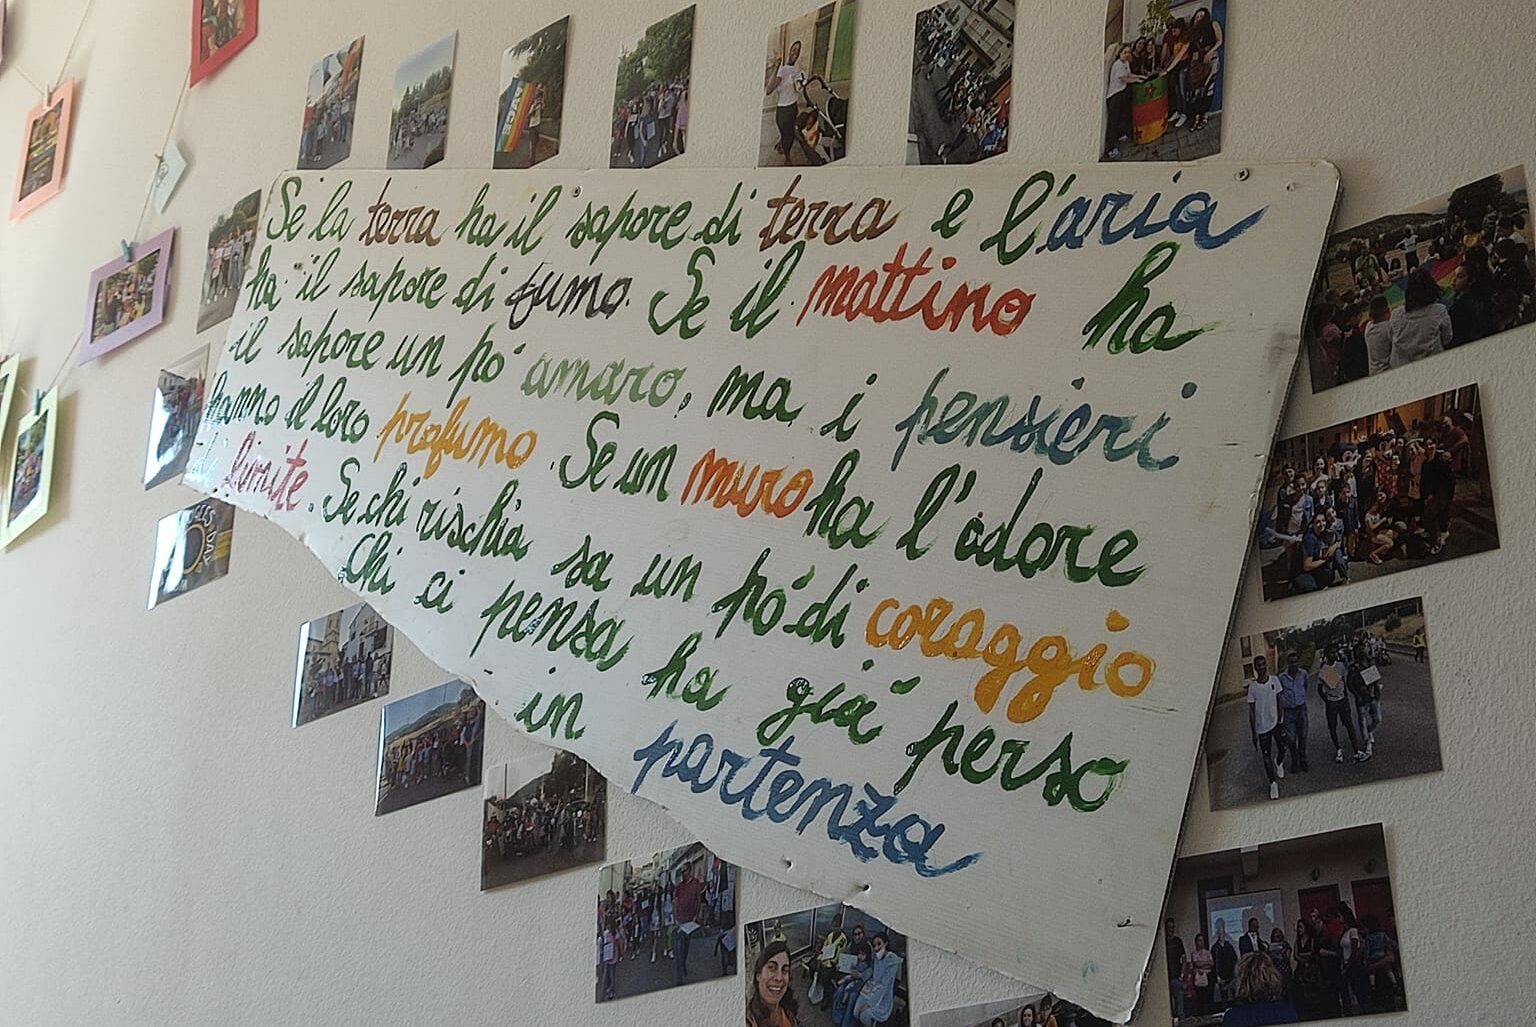 Se la terra ha il sapore di terra e l'aria
ha il sapore di fumo. Se il mattino ha
il sapore un pó amaro, ma i pensieri
hanno il loro profumo. Se un muro ha l'odore
di limite. Se chi rischia sa un pó di coraggio
Chi ci pensa ha giá perso
in partenza
PACE